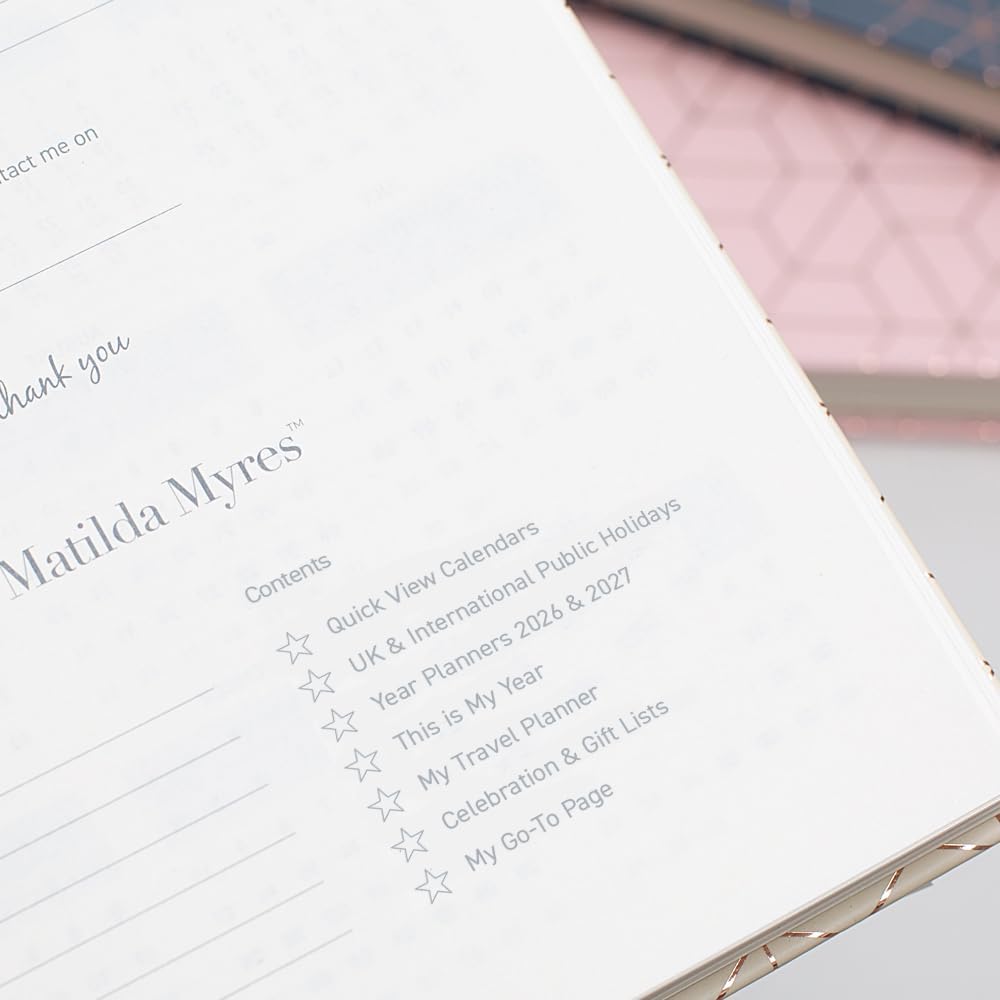 tact me on
thank you
Matilda Myres™
Contents
Quick View Calendars
UK & International Public Holidays
Year Planners 2026 & 2027
This is My Year
My Travel Planner
Celebration & Gift Lists
My Go-To Page